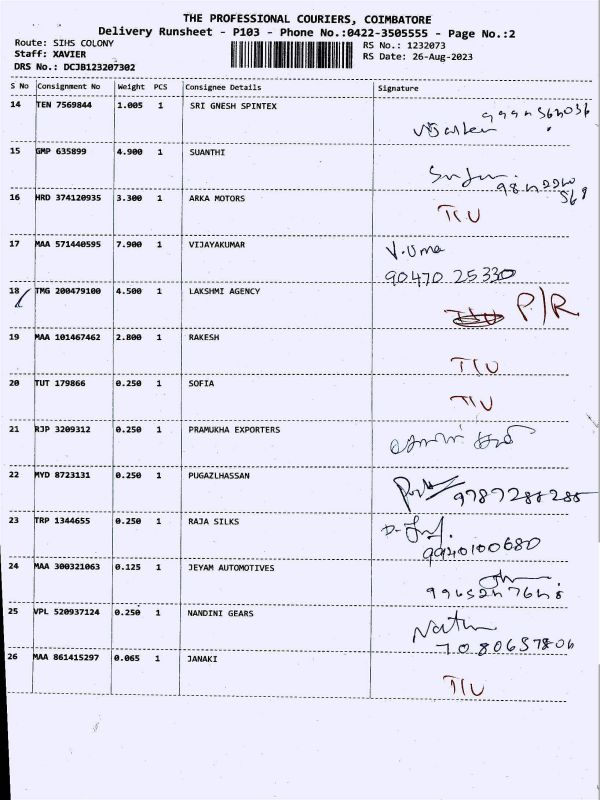 THE PROFESSIONAL COURIERS, COIMBATORE
Delivery Runsheet - P103 - Phone No.:0422-3505555 - Page No.:2
Route: SIHS COLONY
Staff: XAVIER
DRS No.: DCJB123207302
RS No.: 1232073
RS Date: 26-Aug-2023
S No Consignment No Weight PCS Consignee Details Signature
14 TEN 7569844 1.005 1 SRI GNESH SPINTEX
15 GMP 635899 4.900 1 SUANTHI
16 HRD 374120935 3.300 1 ARKA MOTORS TIU
17 MAA 571440595 7.900 1 VIJAYAKUMAR V.Uma
90470 25330
18 TMG 200479100 4.500 1 LAKSHMI AGENCY P/R
19 MAA 101467462 2.800 1 RAKESH TIU
20 TUT 179866 0.250 1 SOFIA TIU
21 RJP 3209312 0.250 1 PRAMUKHA EXPORTERS
22 MYD 8723131 0.250 1 PUGAZLHASSAN 9787288288
23 TRP 1344655 0.250 1 RAJA SILKS
9940100680
24 MAA 300321063 0.125 1 JEYAM AUTOMOTIVES
25 VPL 520937124 0.250 1 NANDINI GEARS
7080657806
26 MAA 861415297 0.065 1 JANAKI TIU